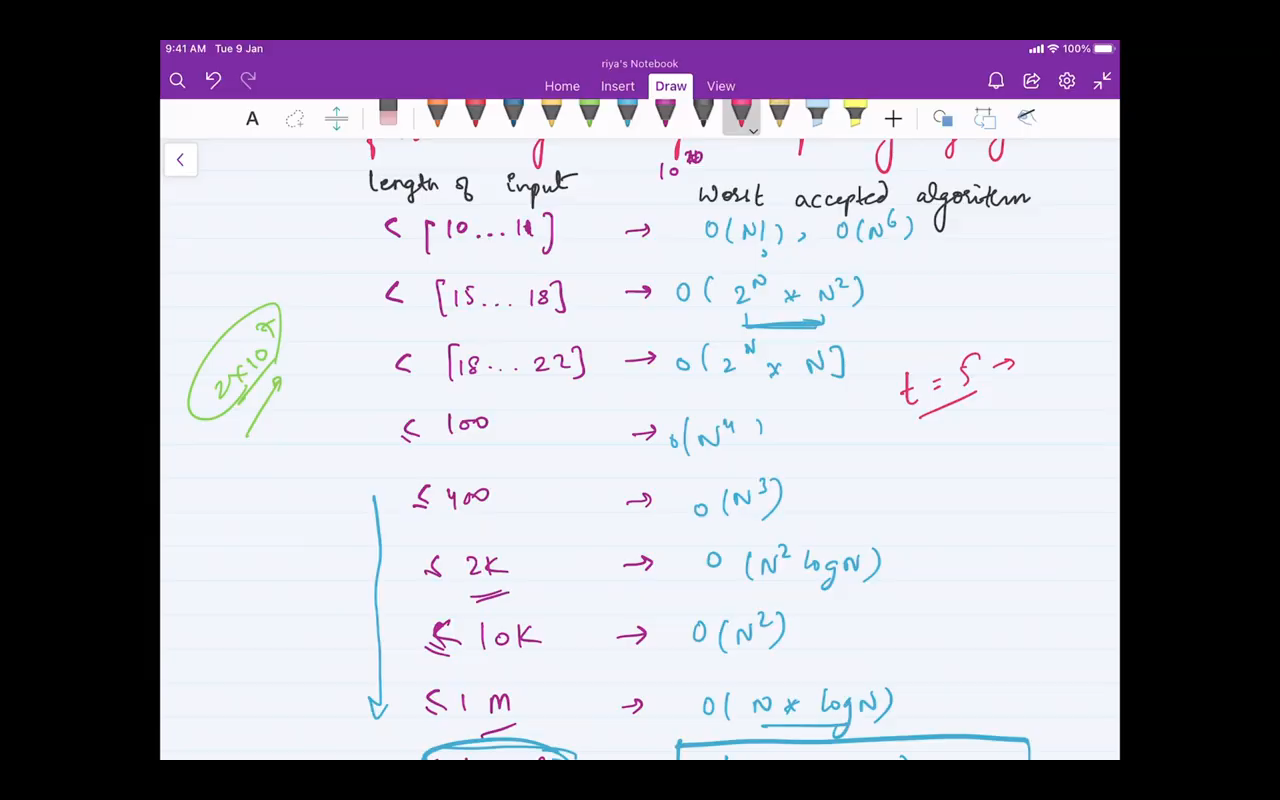 9:41 AM Tue 9 Jan 100%
riya's Notebook
Home Insert Draw View
A
length of input Worst accepted algorithm
< [10...11] → O(N!), O(N^6)
< [15...18] → O(2^N * N^2)
< [18...22] → O(2^N * N]
t = 5 →
≤ 100 → O(N^4)
≤ 400 → O(N^3)
≤ 2K → O(N^2 logN)
≤ 10K → O(N^2)
≤ 1M → O(N * logN)